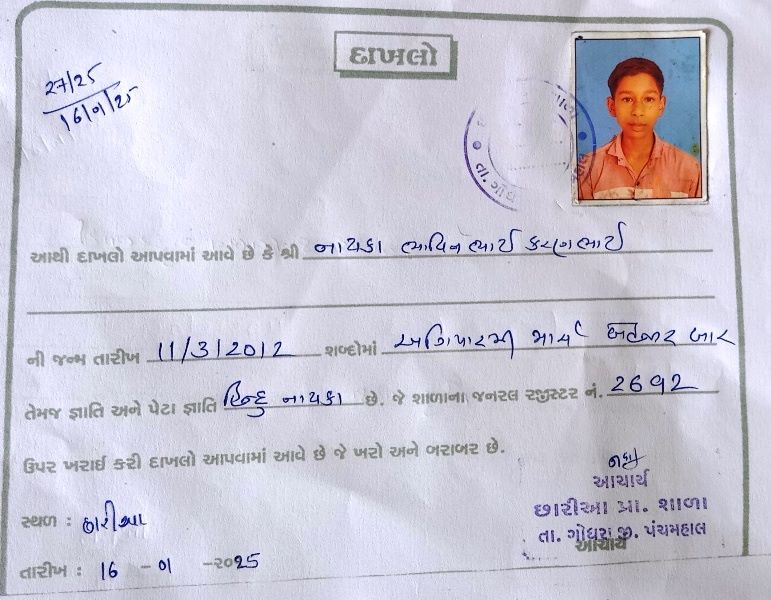 દાખલો
27/25
16/01/25
આથી દાખલો આપવામાં આવે છે કે શ્રી નાયકા ભાવિનભાઈ કરણભાઈ
ની જન્મ તારીખ 11/3/2012 શબ્દોમાં અગિયારમી માર્ચ બાર
તેમજ જ્ઞાતિ અને પેટા જ્ઞાતિ હિન્દુ નાયકા છે. જે શાળાના જનરલ રજીસ્ટર નં. 2692
ઉપર ખરાઈ કરી દાખલો આપવામાં આવે છે જે ખરો અને બરાબર છે.
આચાર્ય
છારીઆ પ્રા. શાળા
તા. ગોધરા જી. પંચમહાલ
આચાર્ય
સ્થળ : છારીઆ
તારીખ : 16 - 01 - ૨૦25